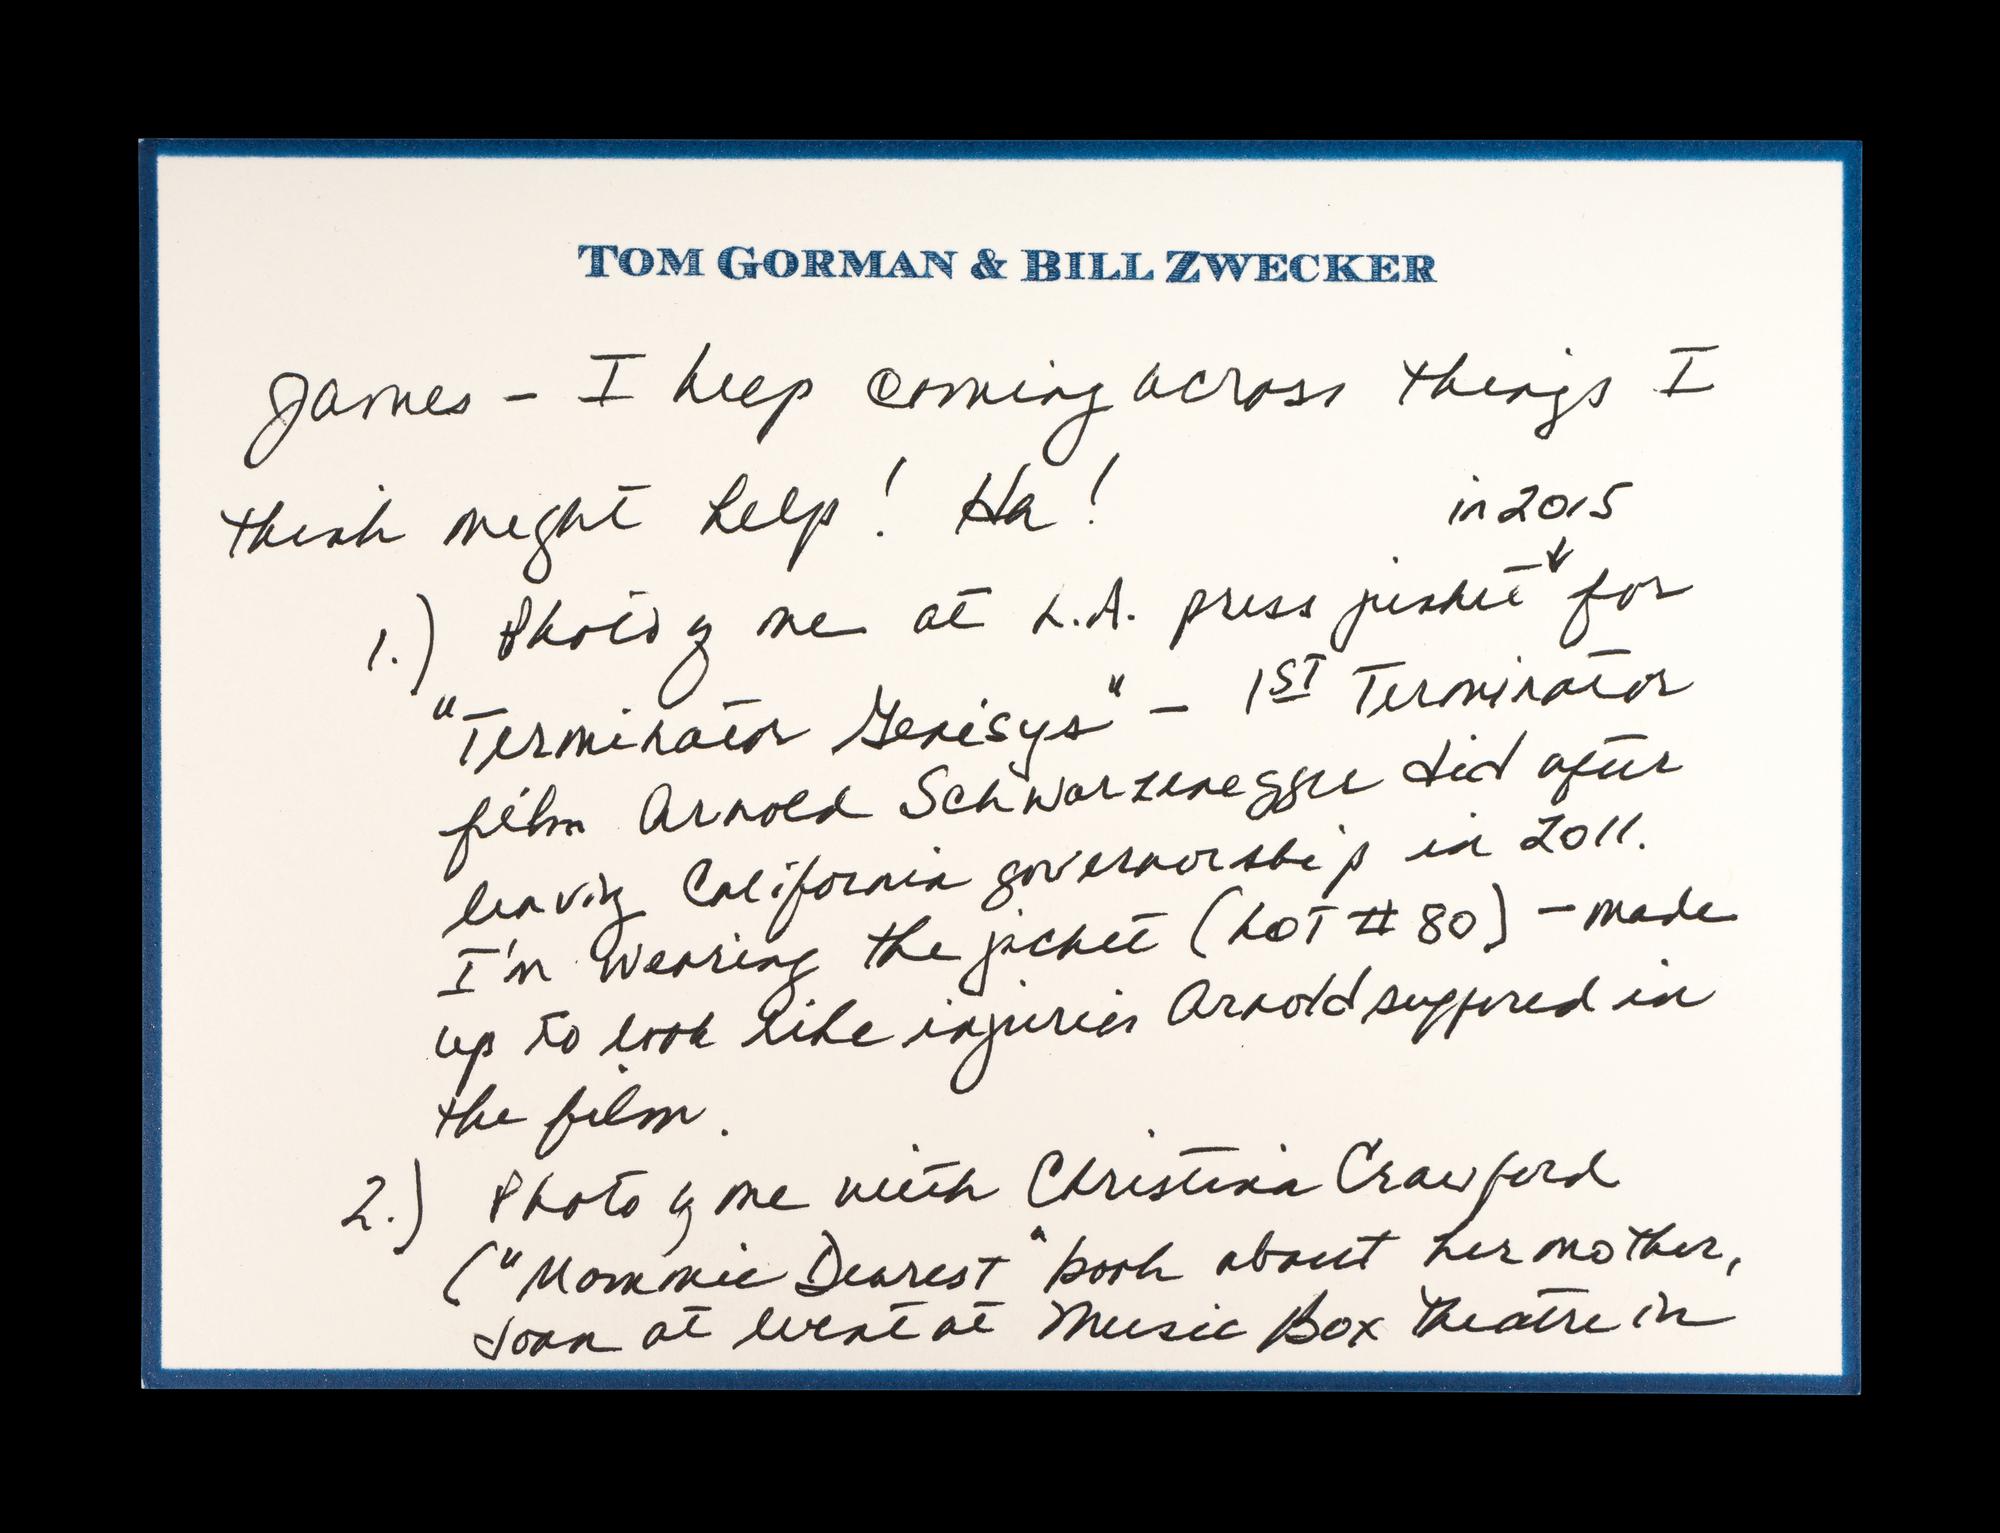 TOM GORMAN & BILL ZWECKER
James - I keep coming across things I
think might help! Ha!
in 2015
1.) Photo of me at L.A. press junket ↓ for
"Terminator Genisys" - 1ST Terminator
film Arnold Schwarzenegger did after
leaving California governorship in 2011.
I'm wearing the jacket (LOT # 80) - made
up to look like injuries Arnold suffered in
the film.
2.) Photo of me with Christina Crawford
("Mommie Dearest" book about her mother,
Joan at event at Music Box Theatre in